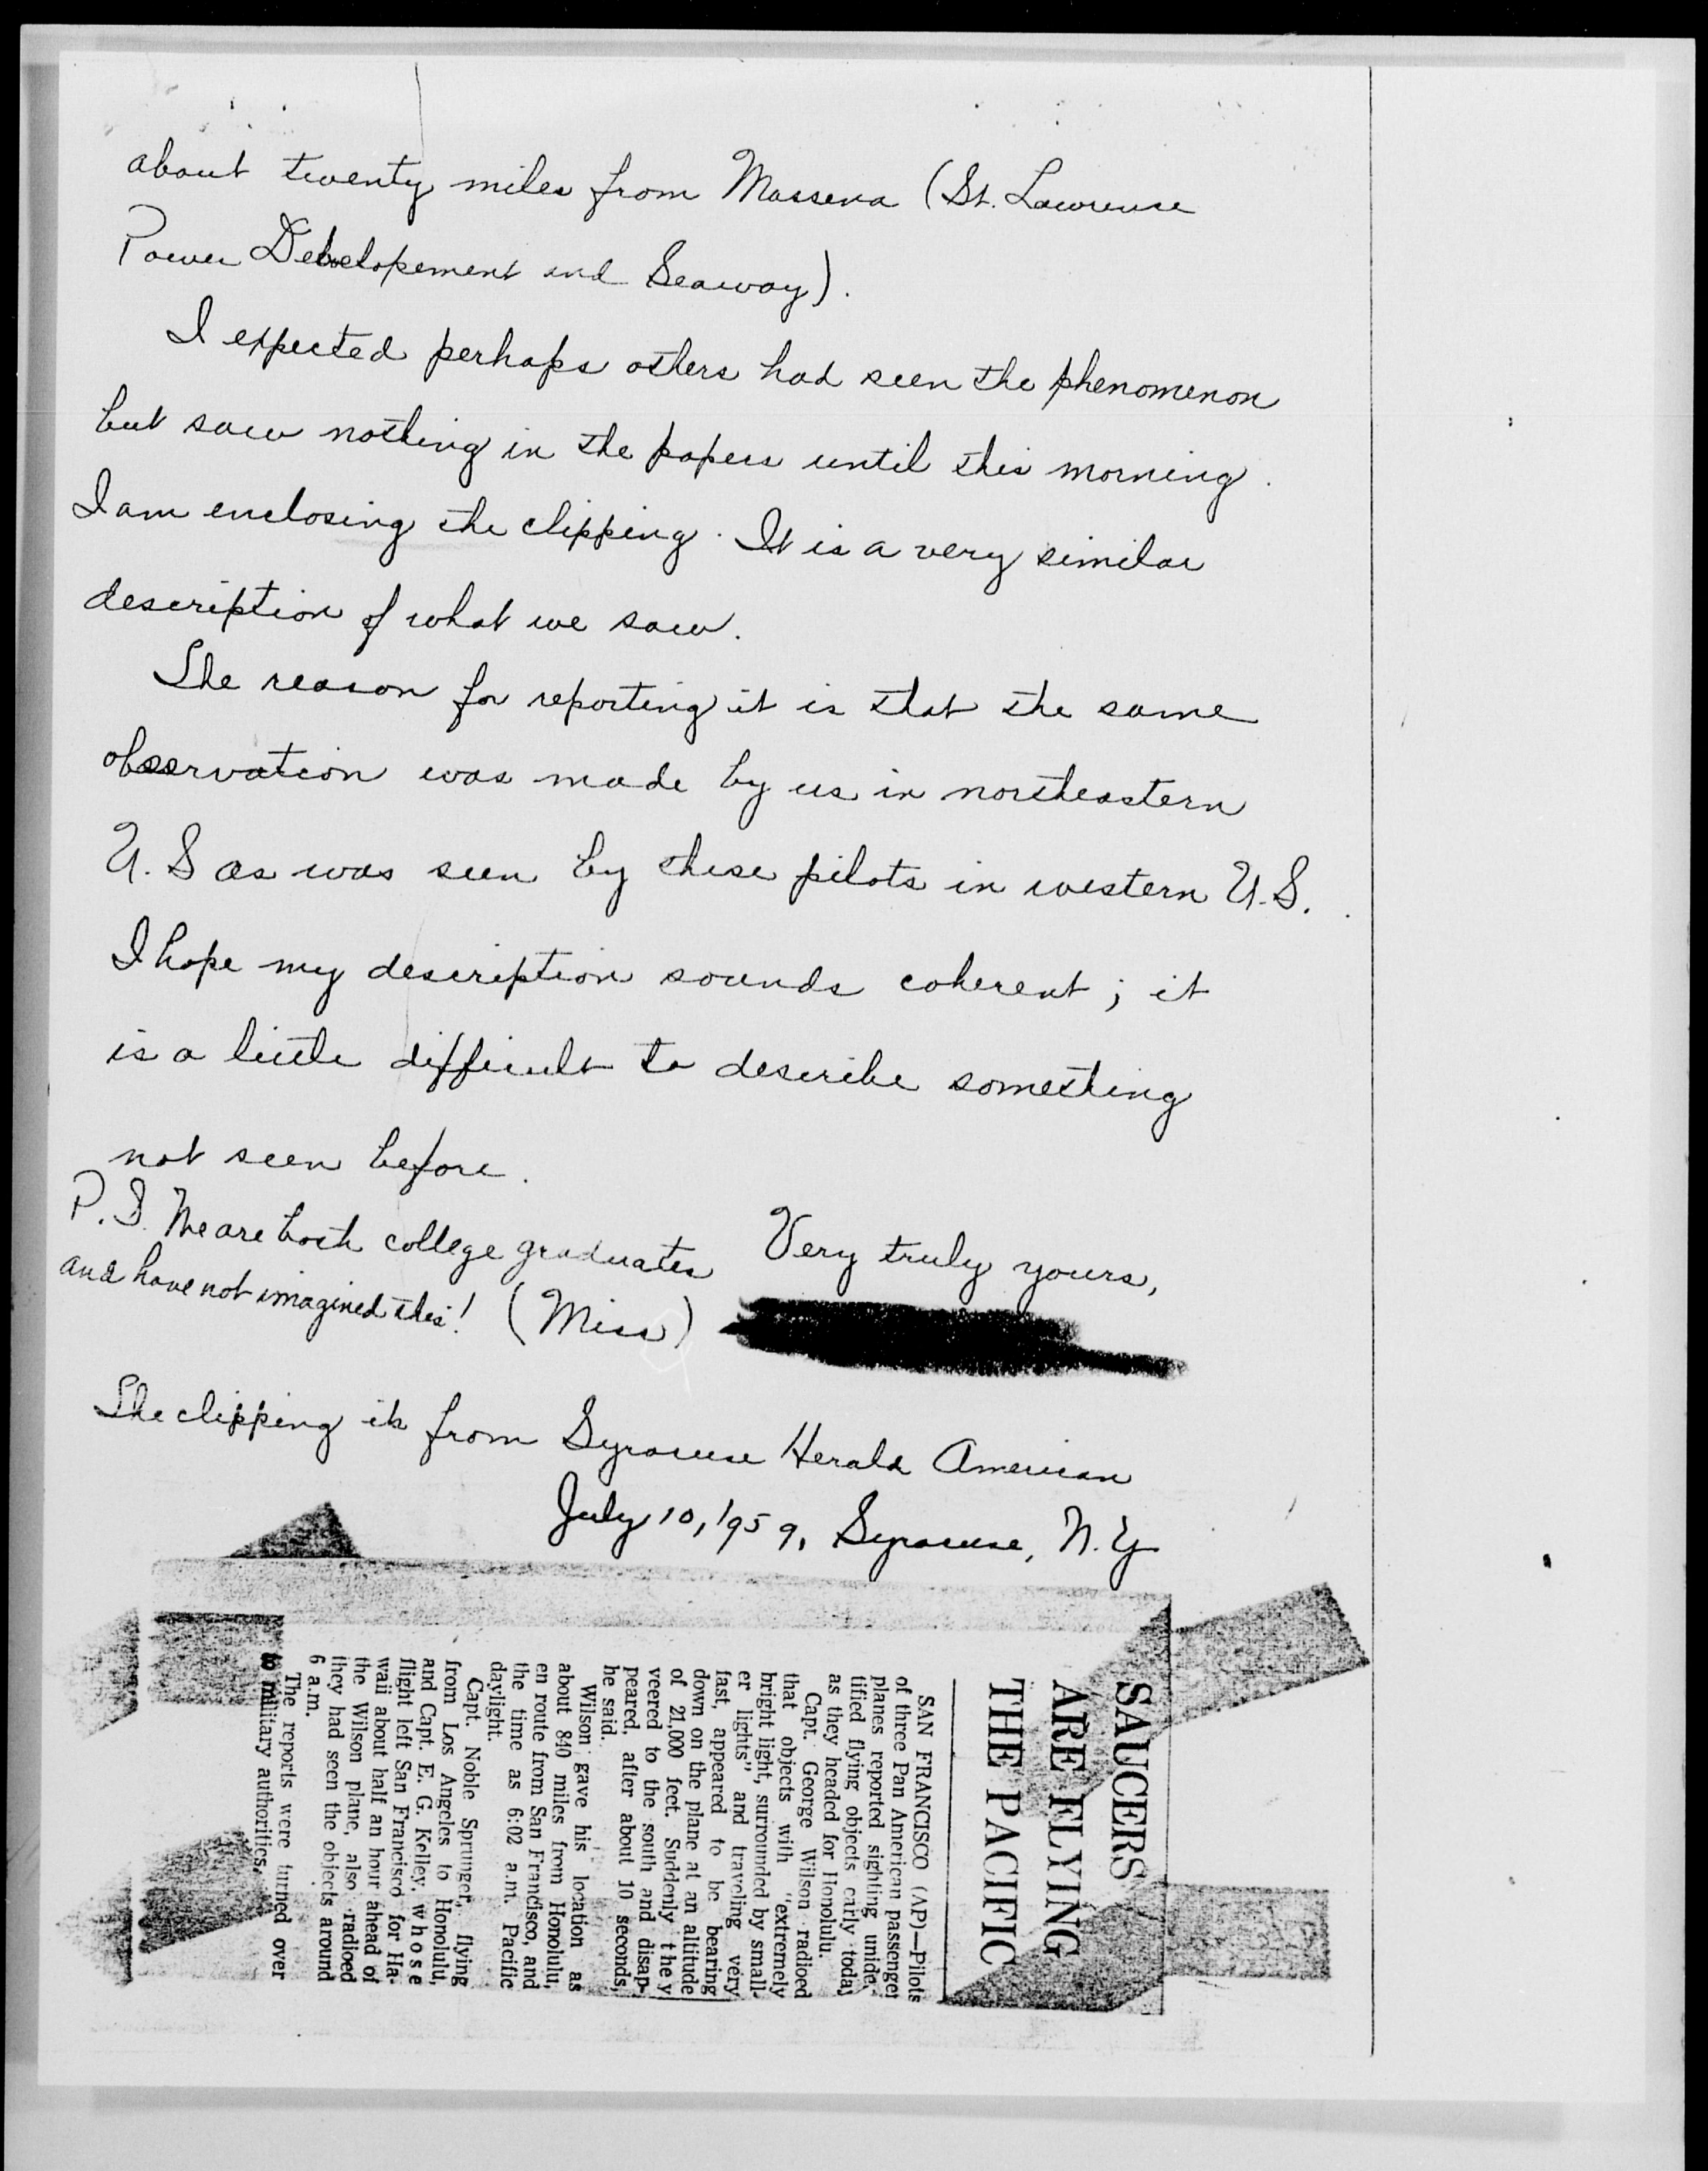 about twenty miles from Massena (St. Lawrence
Power Developement and Seaway).
I expected perhaps others had seen the phenomenon
but saw nothing in the papers until this morning.
I am enclosing the clipping. It is a very similar
description of what we saw.
The reason for reporting it is that the same
observation was made by us in northeastern
U.S as was seen by these pilots in western U.S.
I hope my description sounds coherent; it
is a little difficult to describe something
not seen before.
P.S. We are both college graduates
and have not imagined this!
Very truly yours,
(Miss)
The clipping is from Syracuse Herald American
July 10, 1959, Syracuse, N.Y.
SAUCERS
ARE FLYING
THE PACIFIC
SAN FRANCISCO (AP)—Pilots
of three Pan American passenger
planes reported sighting uniden-
tified flying objects early today
as they headed for Honolulu.
Capt. George Wilson radioed
that objects with "extremely
bright light, surrounded by small-
er lights" and traveling very
fast, appeared to be bearing
down on the plane at an altitude
of 21,000 feet. Suddenly they
veered to the south and disap-
peared, after about 10 seconds,
he said.
Wilson gave his location as
about 840 miles from Honolulu,
en route from San Francisco, and
the time as 6:02 a.m. Pacific
daylight.
Capt. Noble Sprunger, flying
from Los Angeles to Honolulu,
and Capt. E. G. Kelley, whose
flight left San Francisco for Ha-
waii about half an hour ahead of
the Wilson plane, also radioed
they had seen the objects around
6 a.m.
The reports were turned over
to military authorities.